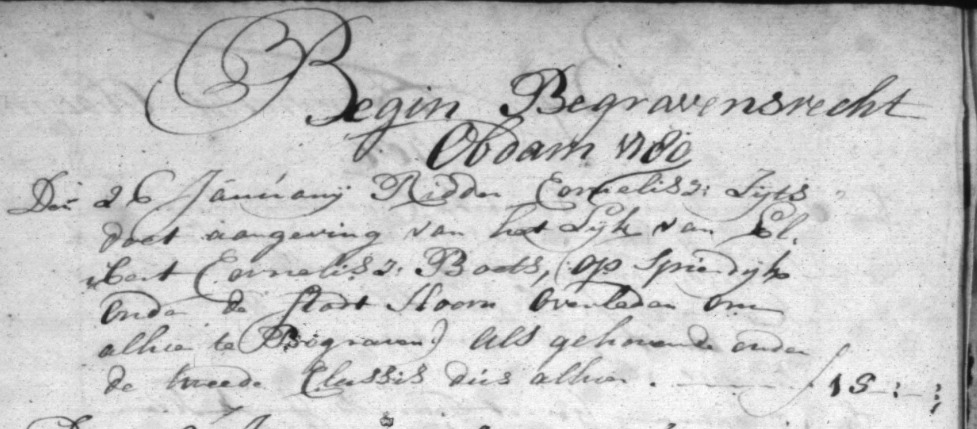 Begin Begravensrecht
Obdam 1780
Den 26 Januarij Ridder Cornelisz: Zijts
doet aangeving van het Lijk van El,
bert Cornelisz: Boots, (op Spierdijk
onder de Stadt Hoorn Overleden om
alhier te Begraven) als gehorende onder
de tweede Classis dus alhier . ——— f 15 -:- :